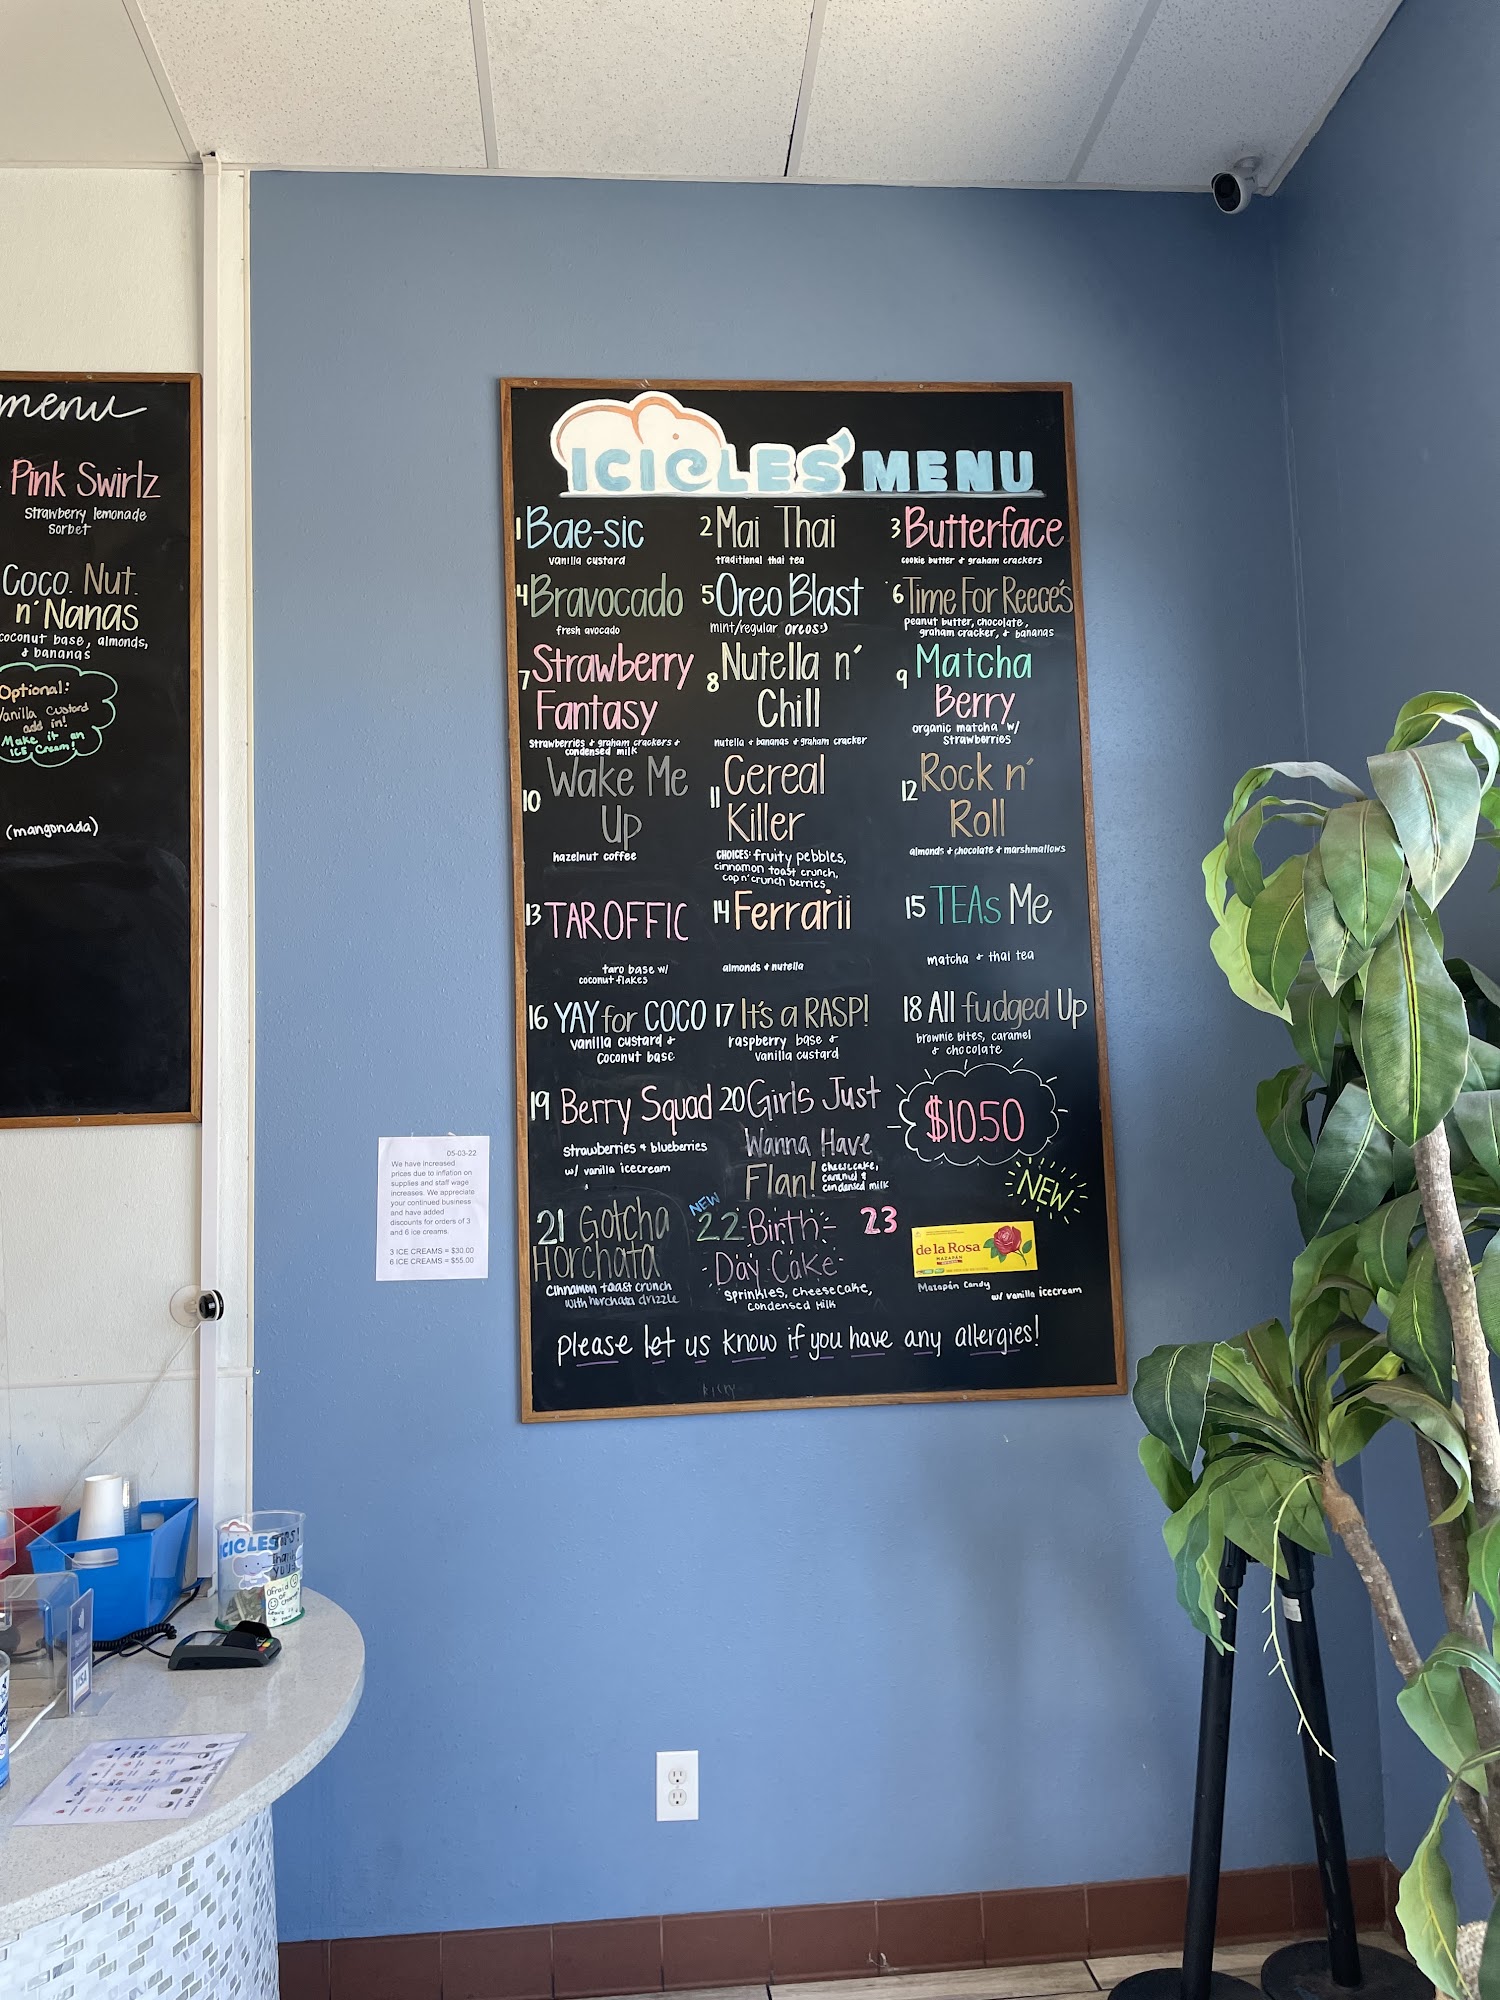 menu
Pink Swirlz
Strawberry lemonade
Sorbet
Coco. Nut.
n' Nanas
coconut base, almonds,
& bananas
Optional:
Vanilla Custard
add in!
Make it an
ICE Cream!
(mangonada)
ICICLES' MENU
1 Bae-sic
vanilla custard
2 Mai Thai
traditional thai tea
3 Butterface
cookie butter & graham crackers
4 Bravocado
fresh avocado
5 Oreo Blast
mint/regular oreos:)
6 Time For Reece's
peanut butter, chocolate,
graham cracker, & bananas
7 Strawberry
Fantasy
Strawberries & graham crackers &
condensed milk
8 Nutella n'
Chill
nutella & bananas & graham cracker
9 Matcha
Berry
organic matcha w/
strawberries
10 Wake Me
Up
hazelnut coffee
11 Cereal
Killer
CHOICES: fruity pebbles,
cinnamon toast crunch,
cap n' crunch berries
12 Rock n'
Roll
almonds & chocolate & marshmallows
13 TAROFFIC
taro base w/
coconut flakes
14 Ferrarii
almonds & nutella
15 TEAs Me
matcha & thai tea
16 YAY for COCO
vanilla custard &
coconut base
17 It's a RASP!
raspberry base &
vanilla custard
18 All fudged Up
brownie bites, caramel
& chocolate
19 Berry Squad
strawberries & blueberries
w/ vanilla icecream
20 Girls Just
Wanna Have
Flan!
cheesecake,
caramel &
condensed milk
$10.50
NEW
21 Gotcha
Horchata
cinnamon toast crunch
with horchata drizzle
NEW
22 Birth
Day Cake
sprinkles, cheesecake,
condensed milk
23
de la Rosa
MAZAPÁN
Mazapán Candy
w/ vanilla icecream
please let us know if you have any allergies!
05-03-22
We have increased
prices due to inflation on
supplies and staff wage
increases. We appreciate
your continued business
and have added
discounts for orders of 3
and 6 ice creams.
3 ICE CREAMS = $30.00
6 ICE CREAMS = $55.00
ICICLES TIPS!
Thank
YOU!
Afraid
of
change?
VISA